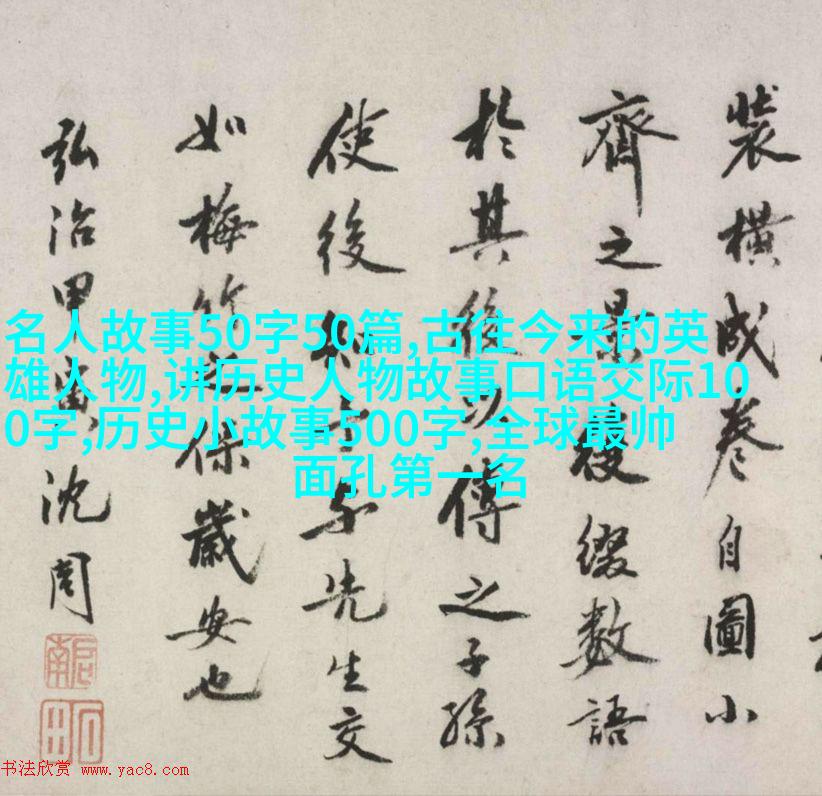 裝橫成卷自圖小
齊之景後綴數語
於其後以傳之子孫
使後知士與先生交
如梅竹保歲安也
弘治甲寅沈周
名人故事50字50篇,古往今来的英
雄人物,讲历史人物故事口语交际10
0字,历史小故事500字,全球最帅
面孔第一名
书法欣赏 www.yac8.com